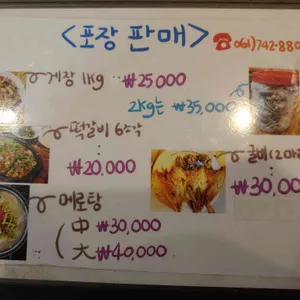 <포장 판매>
☎061)742-880
게장 1kg ₩25,000
2kg는 ₩35,000
떡갈비 6조각
₩20,000
굴비(2마리
₩30,00
메로탕
中 ₩30,000
大 ₩40,000